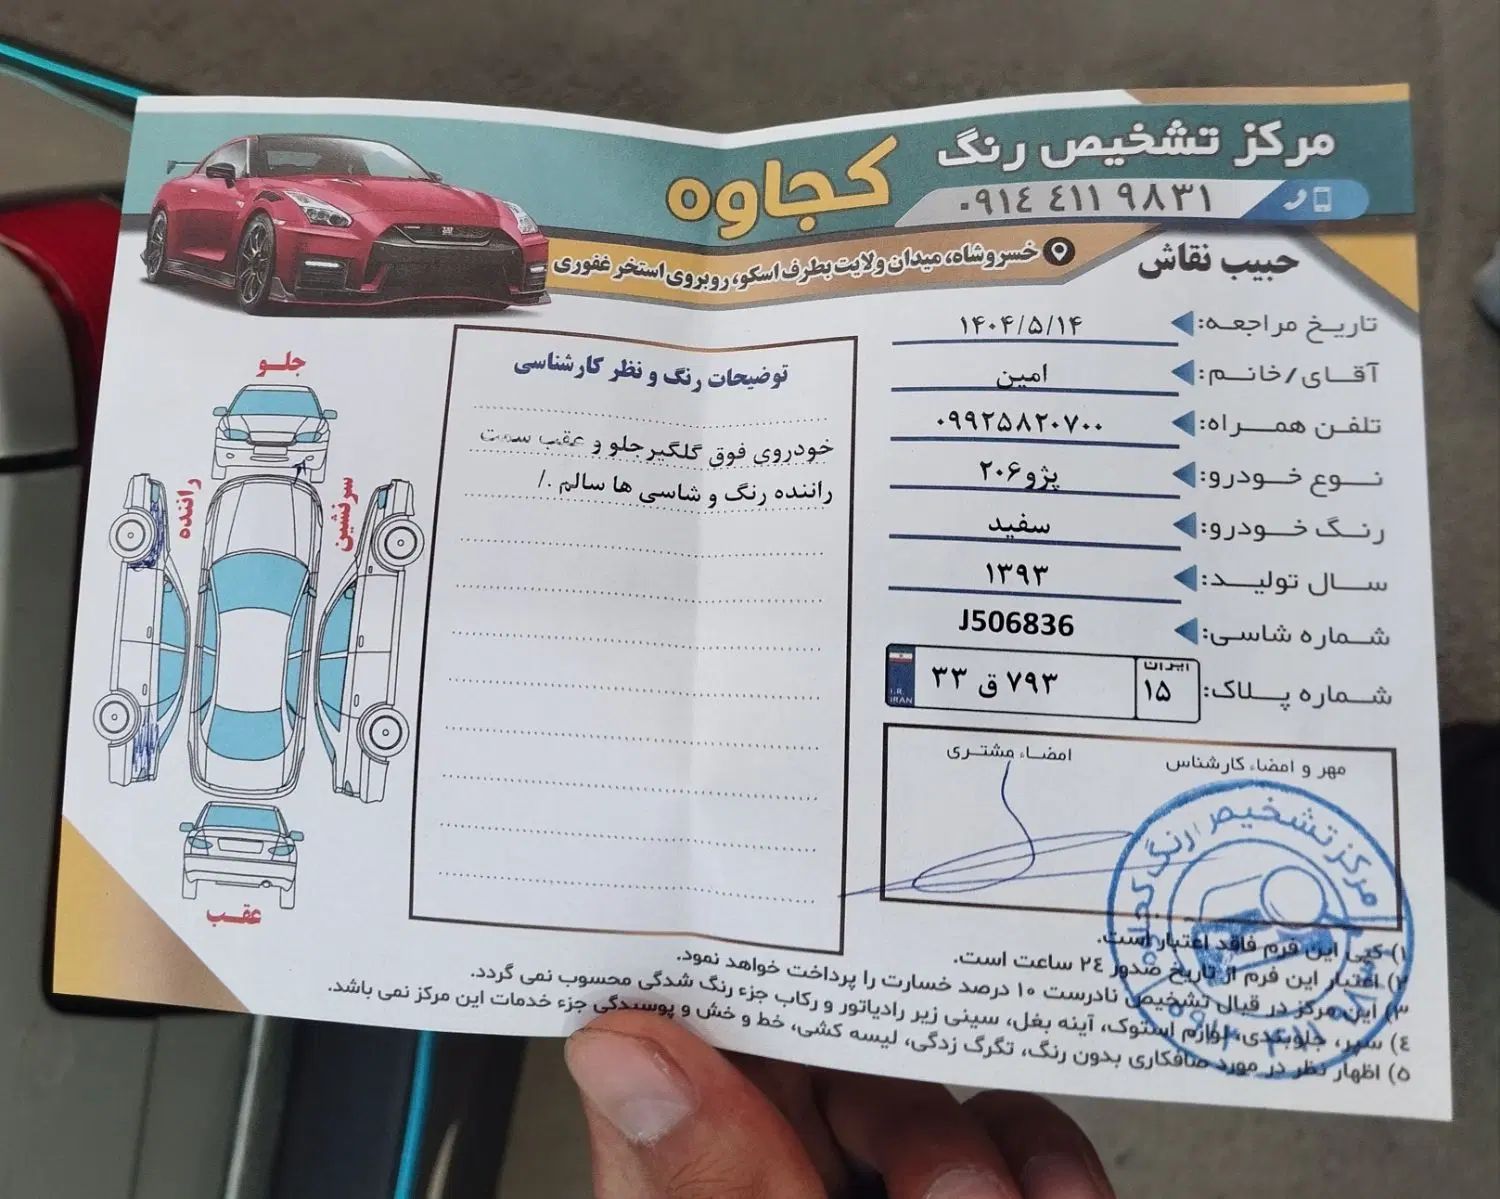 مرکز تشخیص رنگ
کجاوه
۰۹۱٤ ٤۱۱ ۹۸۳۱
خسروشاه، میدان ولایت بطرف اسکو، روبروی استخر غفوری
حبیب نقاش
تاریخ مراجعه: ۱۴۰۴/۵/۱۴
آقای/خانم: امین
تلفن همراه: ۰۹۹۲۵۸۲۰۷۰۰
نوع خودرو: پژو ۲۰۶
رنگ خودرو: سفید
سال تولید: ۱۳۹۳
شماره شاسی: J506836
شماره پلاک: ایران ۱۵ ۷۹۳ ق ۳۳
I.R. IRAN
توضیحات رنگ و نظر کارشناسی
خودروی فوق گلگیر جلو و عقب سمت
راننده رنگ و شاسی ها سالم ./
جلو
راننده
سرنشین
عقب
مهر و امضاء کارشناس
امضاء مشتری
مرکز تشخیص رنگ کجاوه
۱) کپی این فرم فاقد اعتبار است.
۲) اعتبار این فرم از تاریخ صدور ۲٤ ساعت است.
۳) این مرکز در قبال تشخیص نادرست ۱۰ درصد خسارت را پرداخت خواهد نمود.
٤) سپر، جلوبندی، لوازم استوک، آینه بغل، سینی زیر رادیاتور و رکاب جزء رنگ شدگی محسوب نمی گردد.
۵) اظهار نظر در مورد صافکاری بدون رنگ، تگرگ زدگی، لیسه کشی، خط و خش و پوسیدگی جزء خدمات این مرکز نمی باشد.